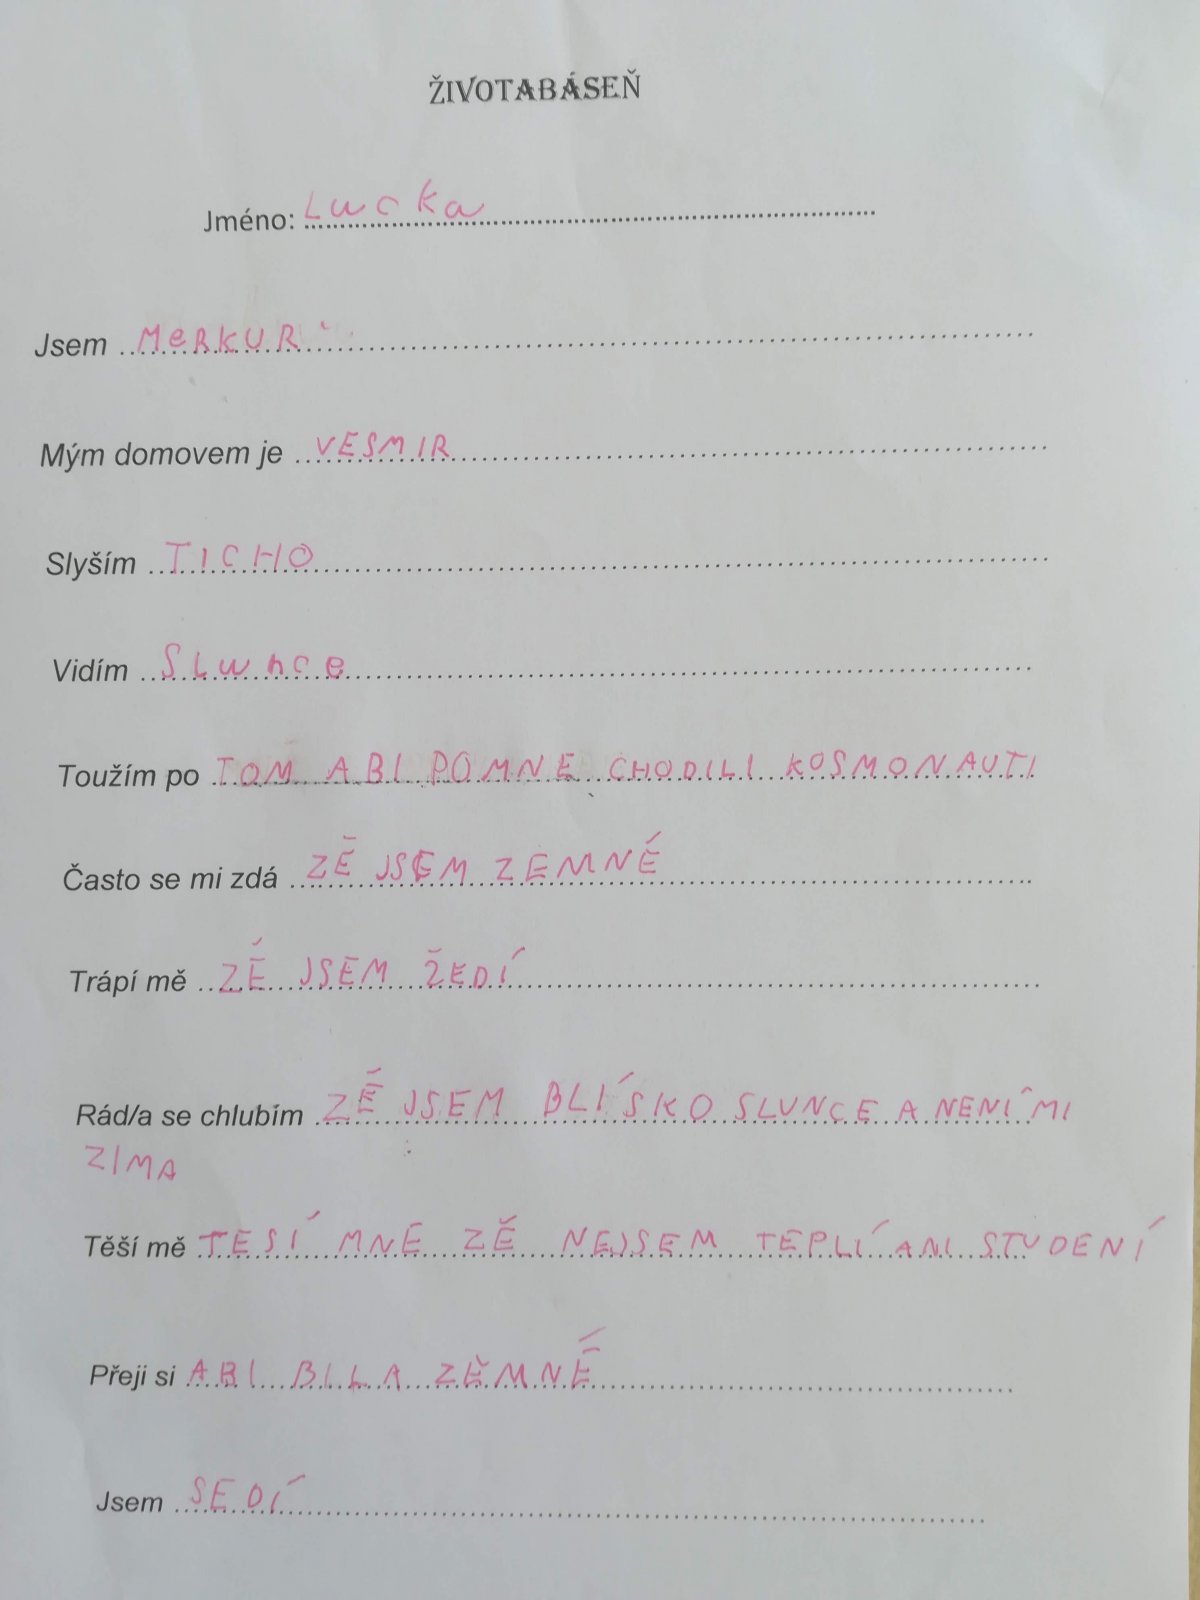 ŽIVOTABÁSEŇ
Jméno: Lucka
Jsem MeRKUR
Mým domovem je VESMIR
Slyším TICHO
Vidím Slunce
Toužím po TOM ABI POMNE CHODILI KOSMONAUTI
Často se mi zdá ZĒ JSEM ZEMNÉ
Trápí mě ZÉ JSEM ŽEDÍ
Rád/a se chlubím ZÉ JSEM BLÍSKO SLUNCE A NENÍ MI
ZIMA
Těší mě TESÍ MNE ZĚ NEJSEM TEPLÍ ANI STUDENÍ
Přeji si ABI BILA ZĚMNÉ
Jsem SEDÍ